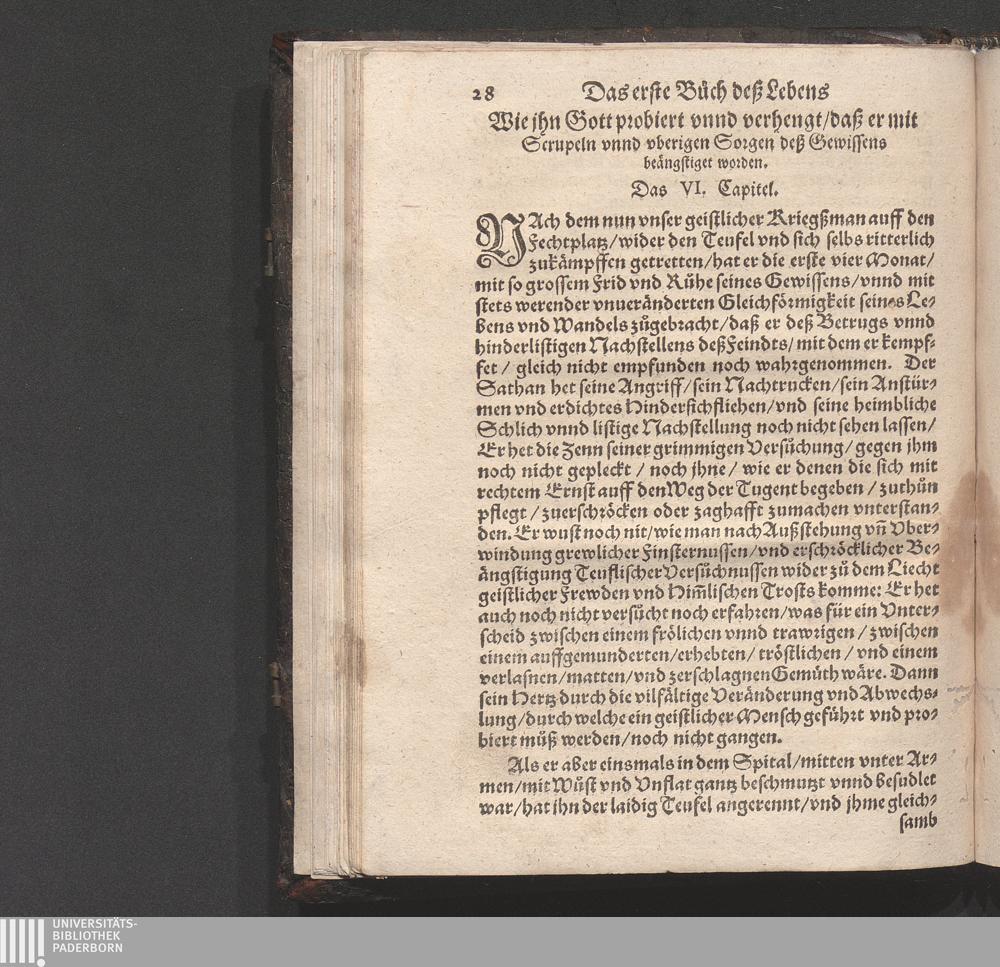 28 Das erste Bůch deß Lebens
Wie jhn Gott probiert vnnd verhengt/daß er mit
Scrupeln vnnd vberigen Sorgen deß Gewissens
beängstiget worden.
Das VI. Capitel.
NAch dem nun vnser geistlicher Kriegßman auff den
Fechtplatz/wider den Teufel vnd sich selbs ritterlich
zukämpffen getretten/hat er die erste vier Monat/
mit so grossem Frid vnd Růhe seines Gewissens/vnnd mit
stets werender vnueränderten Gleichförmigkeit seines Le-
bens vnd Wandels zůgebracht/daß er deß Betrugs vnnd
hinderlistigen Nachstellens deß Feindts/mit dem er kempf-
fet/ gleich nicht empfunden noch wahrgenommen. Der
Sathan het seine Angriff/sein Nachtrucken/sein Anstür-
men vnd erdichtes Hindersichfliehen/vnd seine heimbliche
Schlich vnnd listige Nachstellung noch nicht sehen lassen/
Er het die Zenn seiner grimmigen Versůchung/gegen jhm
noch nicht gepleckt / noch jhne / wie er denen die sich mit
rechtem Ernst auff den Weg der Tugent begeben / zuthůn
pflegt / zuerschröcken oder zaghafft zumachen vnterstan-
den. Er wust noch nit/wie man nach Außstehung vñ Vber-
windung grewlicher Finsternussen/vnd erschröcklicher Be-
ängstigung Teuflischer Versůchnussen wider zů dem Liecht
geistlicher Frewden vnd Him̃lischen Trosts komme: Er het
auch noch nicht versůcht noch erfahren/was für ein Vnter-
scheid zwischen einem frölichen vnnd trawrigen / zwischen
einem auffgemunderten/erhebten/ tröstlichen / vnd einem
verlasnen/matten/vnd zerschlagnen Gemüth wäre. Dann
sein Hertz durch die vilfältige Veränderung vnd Abwechs-
lung/durch welche ein geistlicher Mensch geführt vnd pro-
biert můß werden/noch nicht gangen.
Als er aber einsmals in dem Spital/mitten vnter Ar-
men/mit Wůst vnd Vnflat gantz beschmutzt vnnd besudlet
war/hat ihn der laidig Teufel angerennt/vnd jhme gleich-
samb
UNIVERSITÄTS-
BIBLIOTHEK
PADERBORN